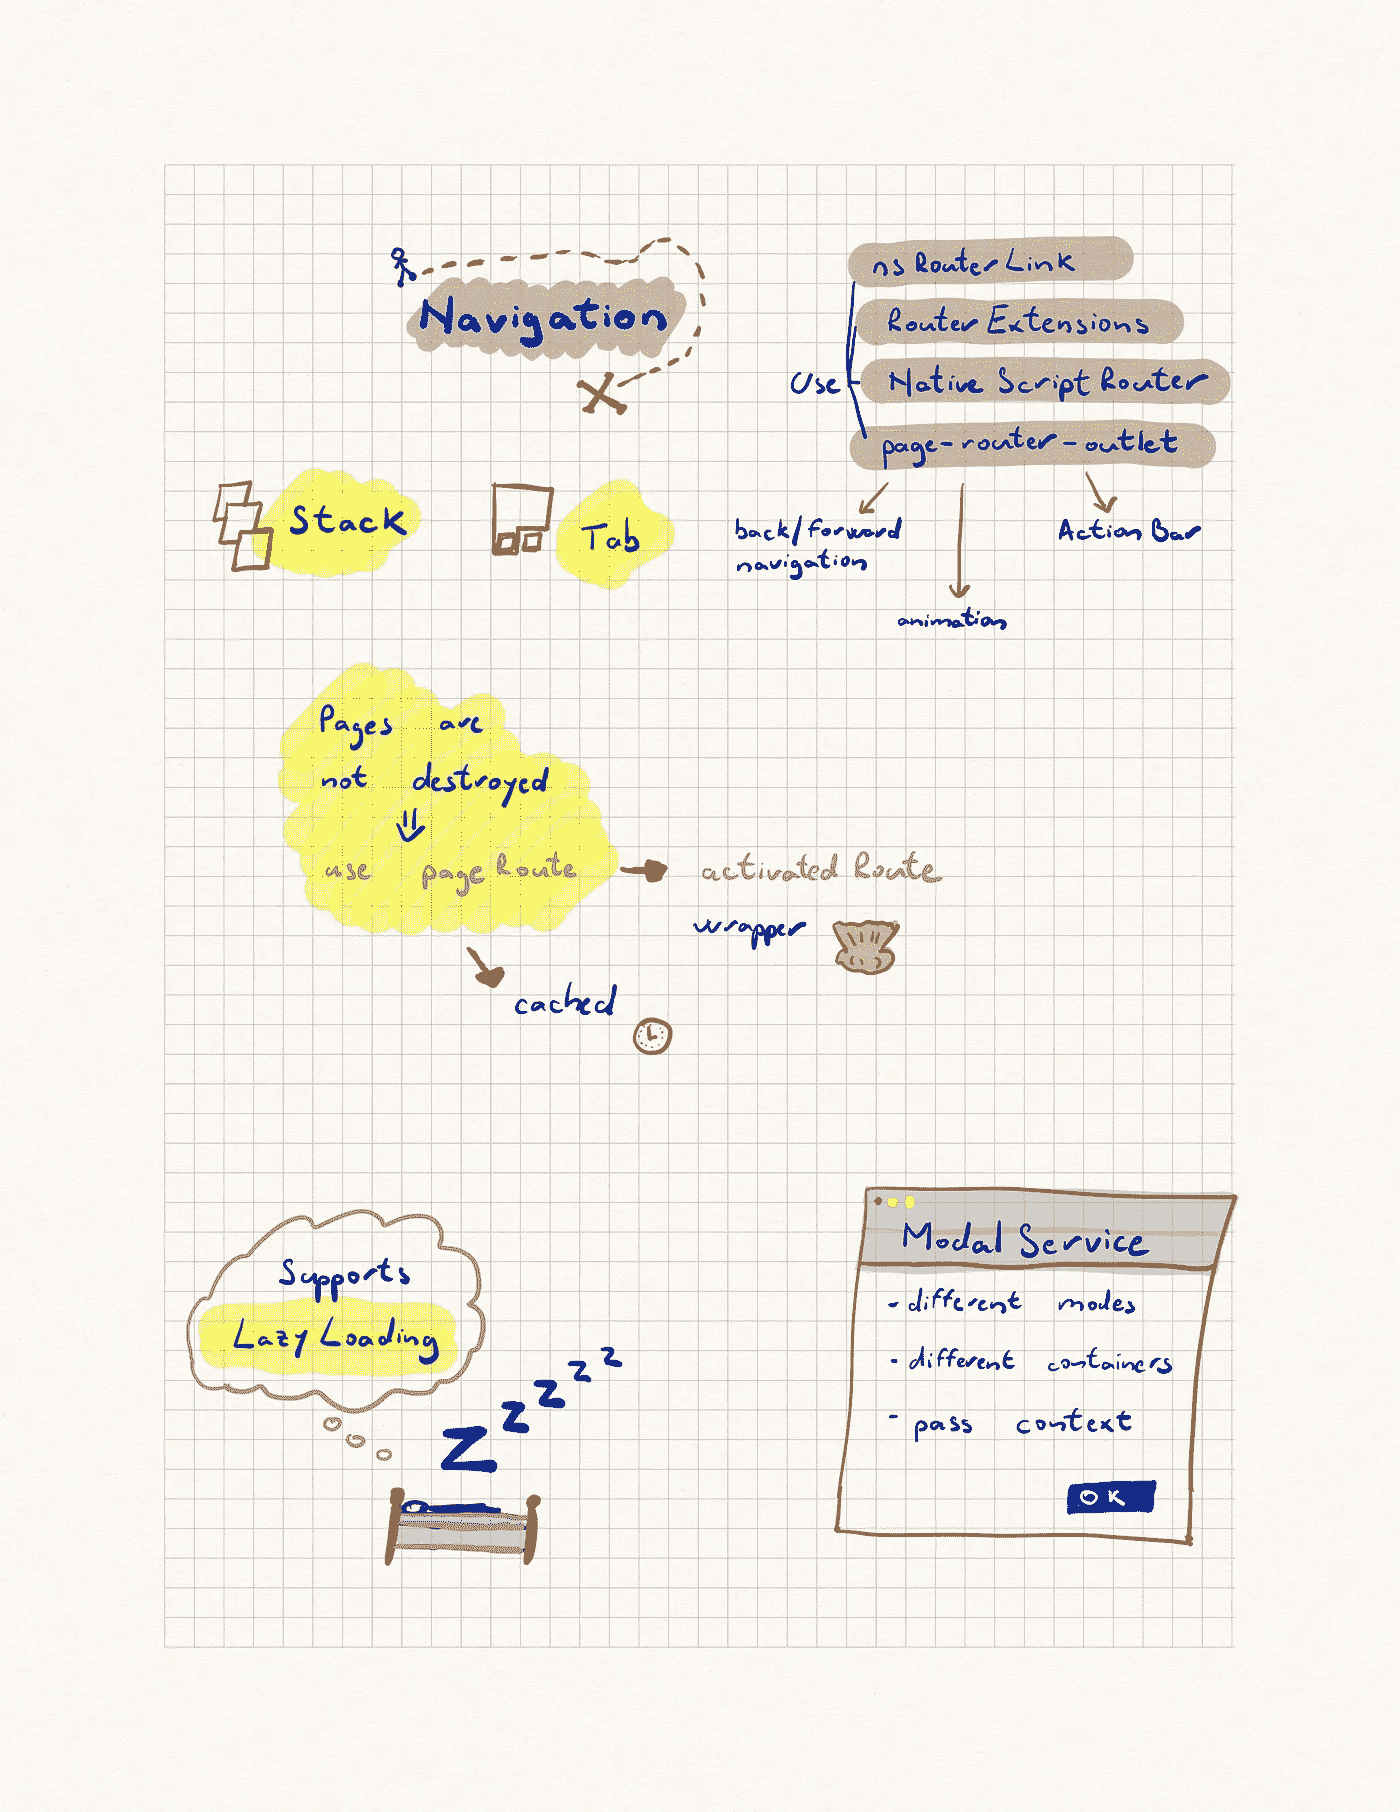 Navigation
ns RouterLink
Router Extensions
Use
Native Script Router
page-router-outlet
Stack
Tab
back/forward
navigation
animation
Action Bar
Pages are
not destroyed
use page Route
activated Route
wrapper
cached
Supports
Lazy Loading
Z z z z z
Modal Service
- different modes
- different containers
- pass context
OK